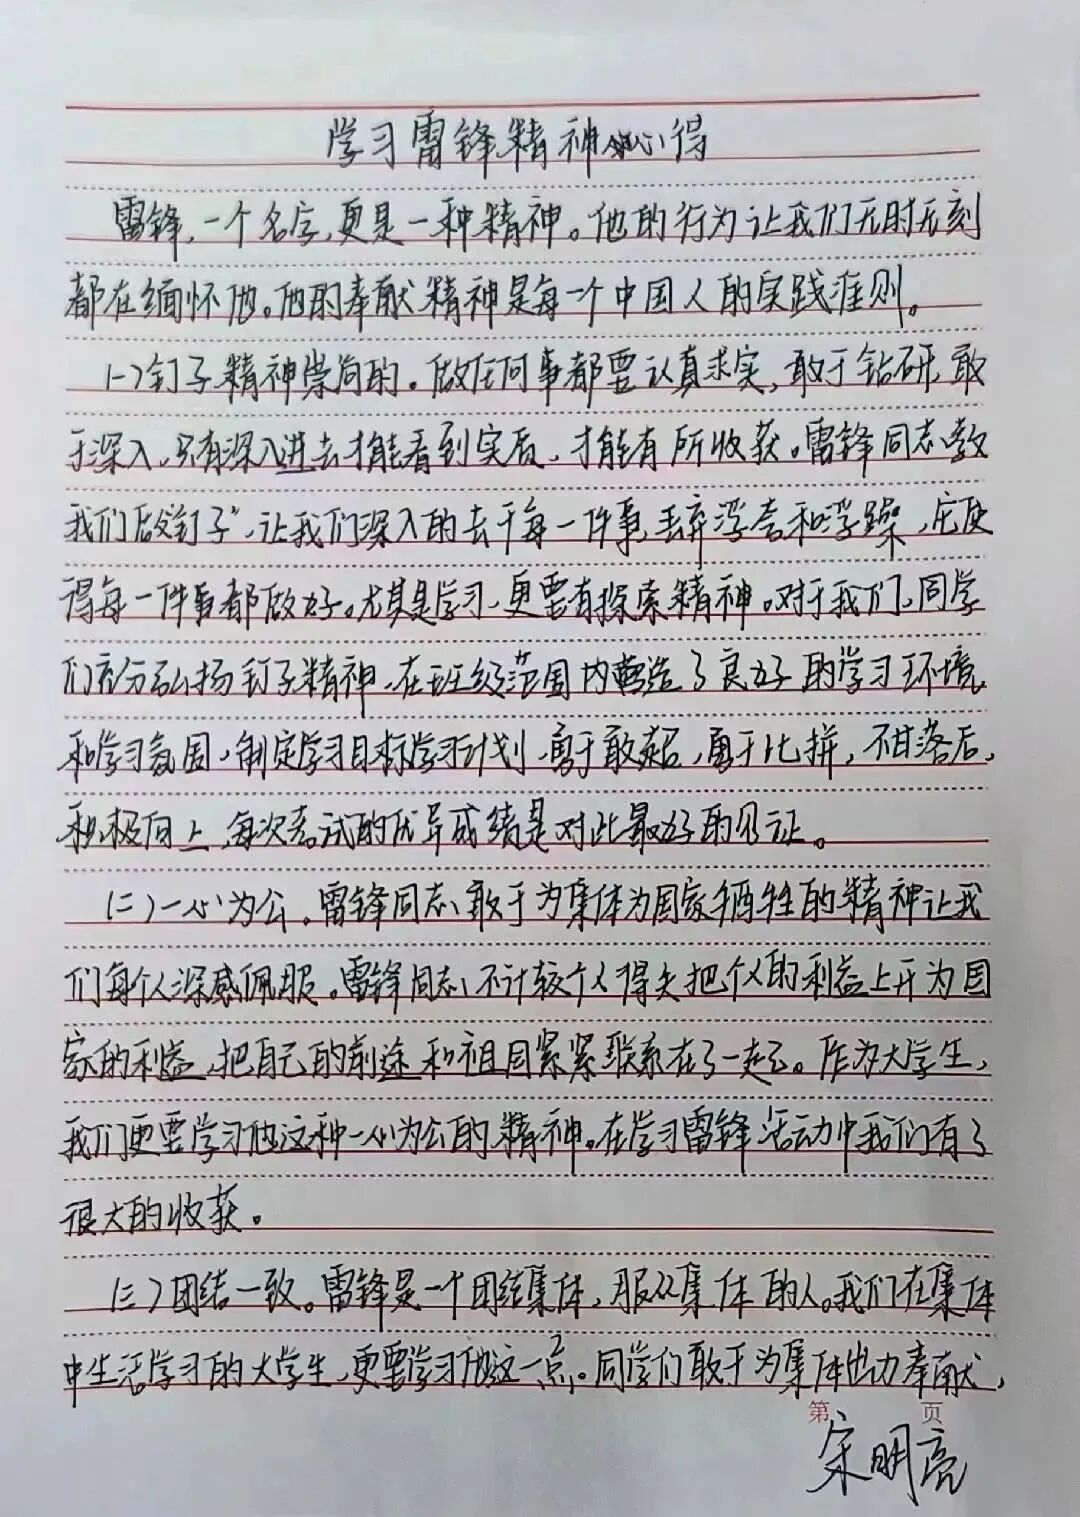 学习雷锋精神心得
雷锋,一个名字,更是一种精神。他的行为让我们无时无刻
都在缅怀他。他的奉献精神是每一个中国人的实践准则。
(一)钉子精神崇尚的。做任何事都要认真求实,敢于钻研,敢
于深入,只有深入进去才能看到实质,才能有所收获。雷锋同志教
我们做"钉子",让我们深入的去干每一件事,丢弃浮夸和浮躁,
得每一件事都做好。尤其是学习,更要有探索精神。对于我们,同学
们充分弘扬钉子精神,在班级范围内营造了良好的学习环境
和学习氛围,制定学习目标学习计划,勇于敢超,勇于比拼,不甘落后,
积极向上,每次考试的优异成绩是对此最好的见证。
(二)一心为公。雷锋同志敢于为集体为国家牺牲的精神让我
们每个人深感佩服。雷锋同志不计较个人得失把个人的利益上升为国
家的利益,把自己的前途和祖国紧紧联系在了一起。作为大学生,
我们更要学习他这种一心为公的精神。在学习雷锋活动中我们有了
很大的收获。
(三)团结一致。雷锋是一个团结集体,服从集体的人。我们在集体
中生活学习的大学生,更要学习他这一点。同学们敢于为集体出力奉献,
第 页
宋明亮